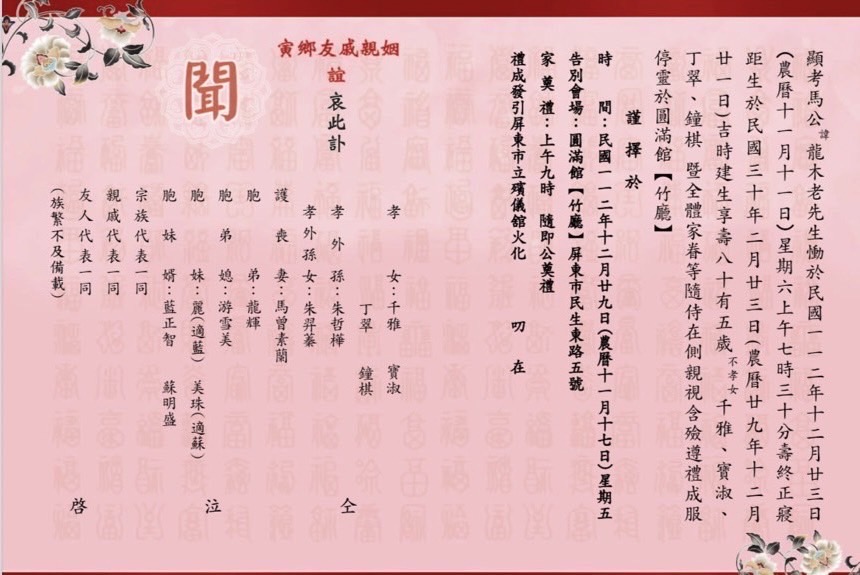 顯考馬公諱龍木老先生慟於民國一一二年十二月廿三日
(農曆十一月十一日)星期六上午七時三十分壽終正寢
距生於民國三十年二月廿三日(農曆廿九年十二月
廿一日)吉時建生享壽八十有五歲不孝女千雅、寶淑、
丁翠、鐘棋 暨全體家眷等隨侍在側親視含殮遵禮成服
停靈於圓滿館【竹廳】
謹擇於
時 間：民國一一二年十二月廿九日(農曆十一月十七日)星期五
告別會場：圓滿館【竹廳】屏東市民生東路五號
家奠禮：上午九時 隨即公奠禮
禮成發引屏東市立殯儀館火化 叨在
姻親戚友鄉寅
誼 哀此訃
聞
孝 女：千雅 寶淑
丁翠 鐘棋
孝外孫：朱哲樺
孝外孫女：朱羿蓁
護喪妻：馬曾素蘭
胞 弟：龍輝
胞弟媳：游雪美
胞 妹：麗(適藍) 美珠(適蘇)
胞妹婿：藍正智 蘇明盛
宗族代表一同
親戚代表一同
友人代表一同
(族繁不及備載)
仝
泣
啓